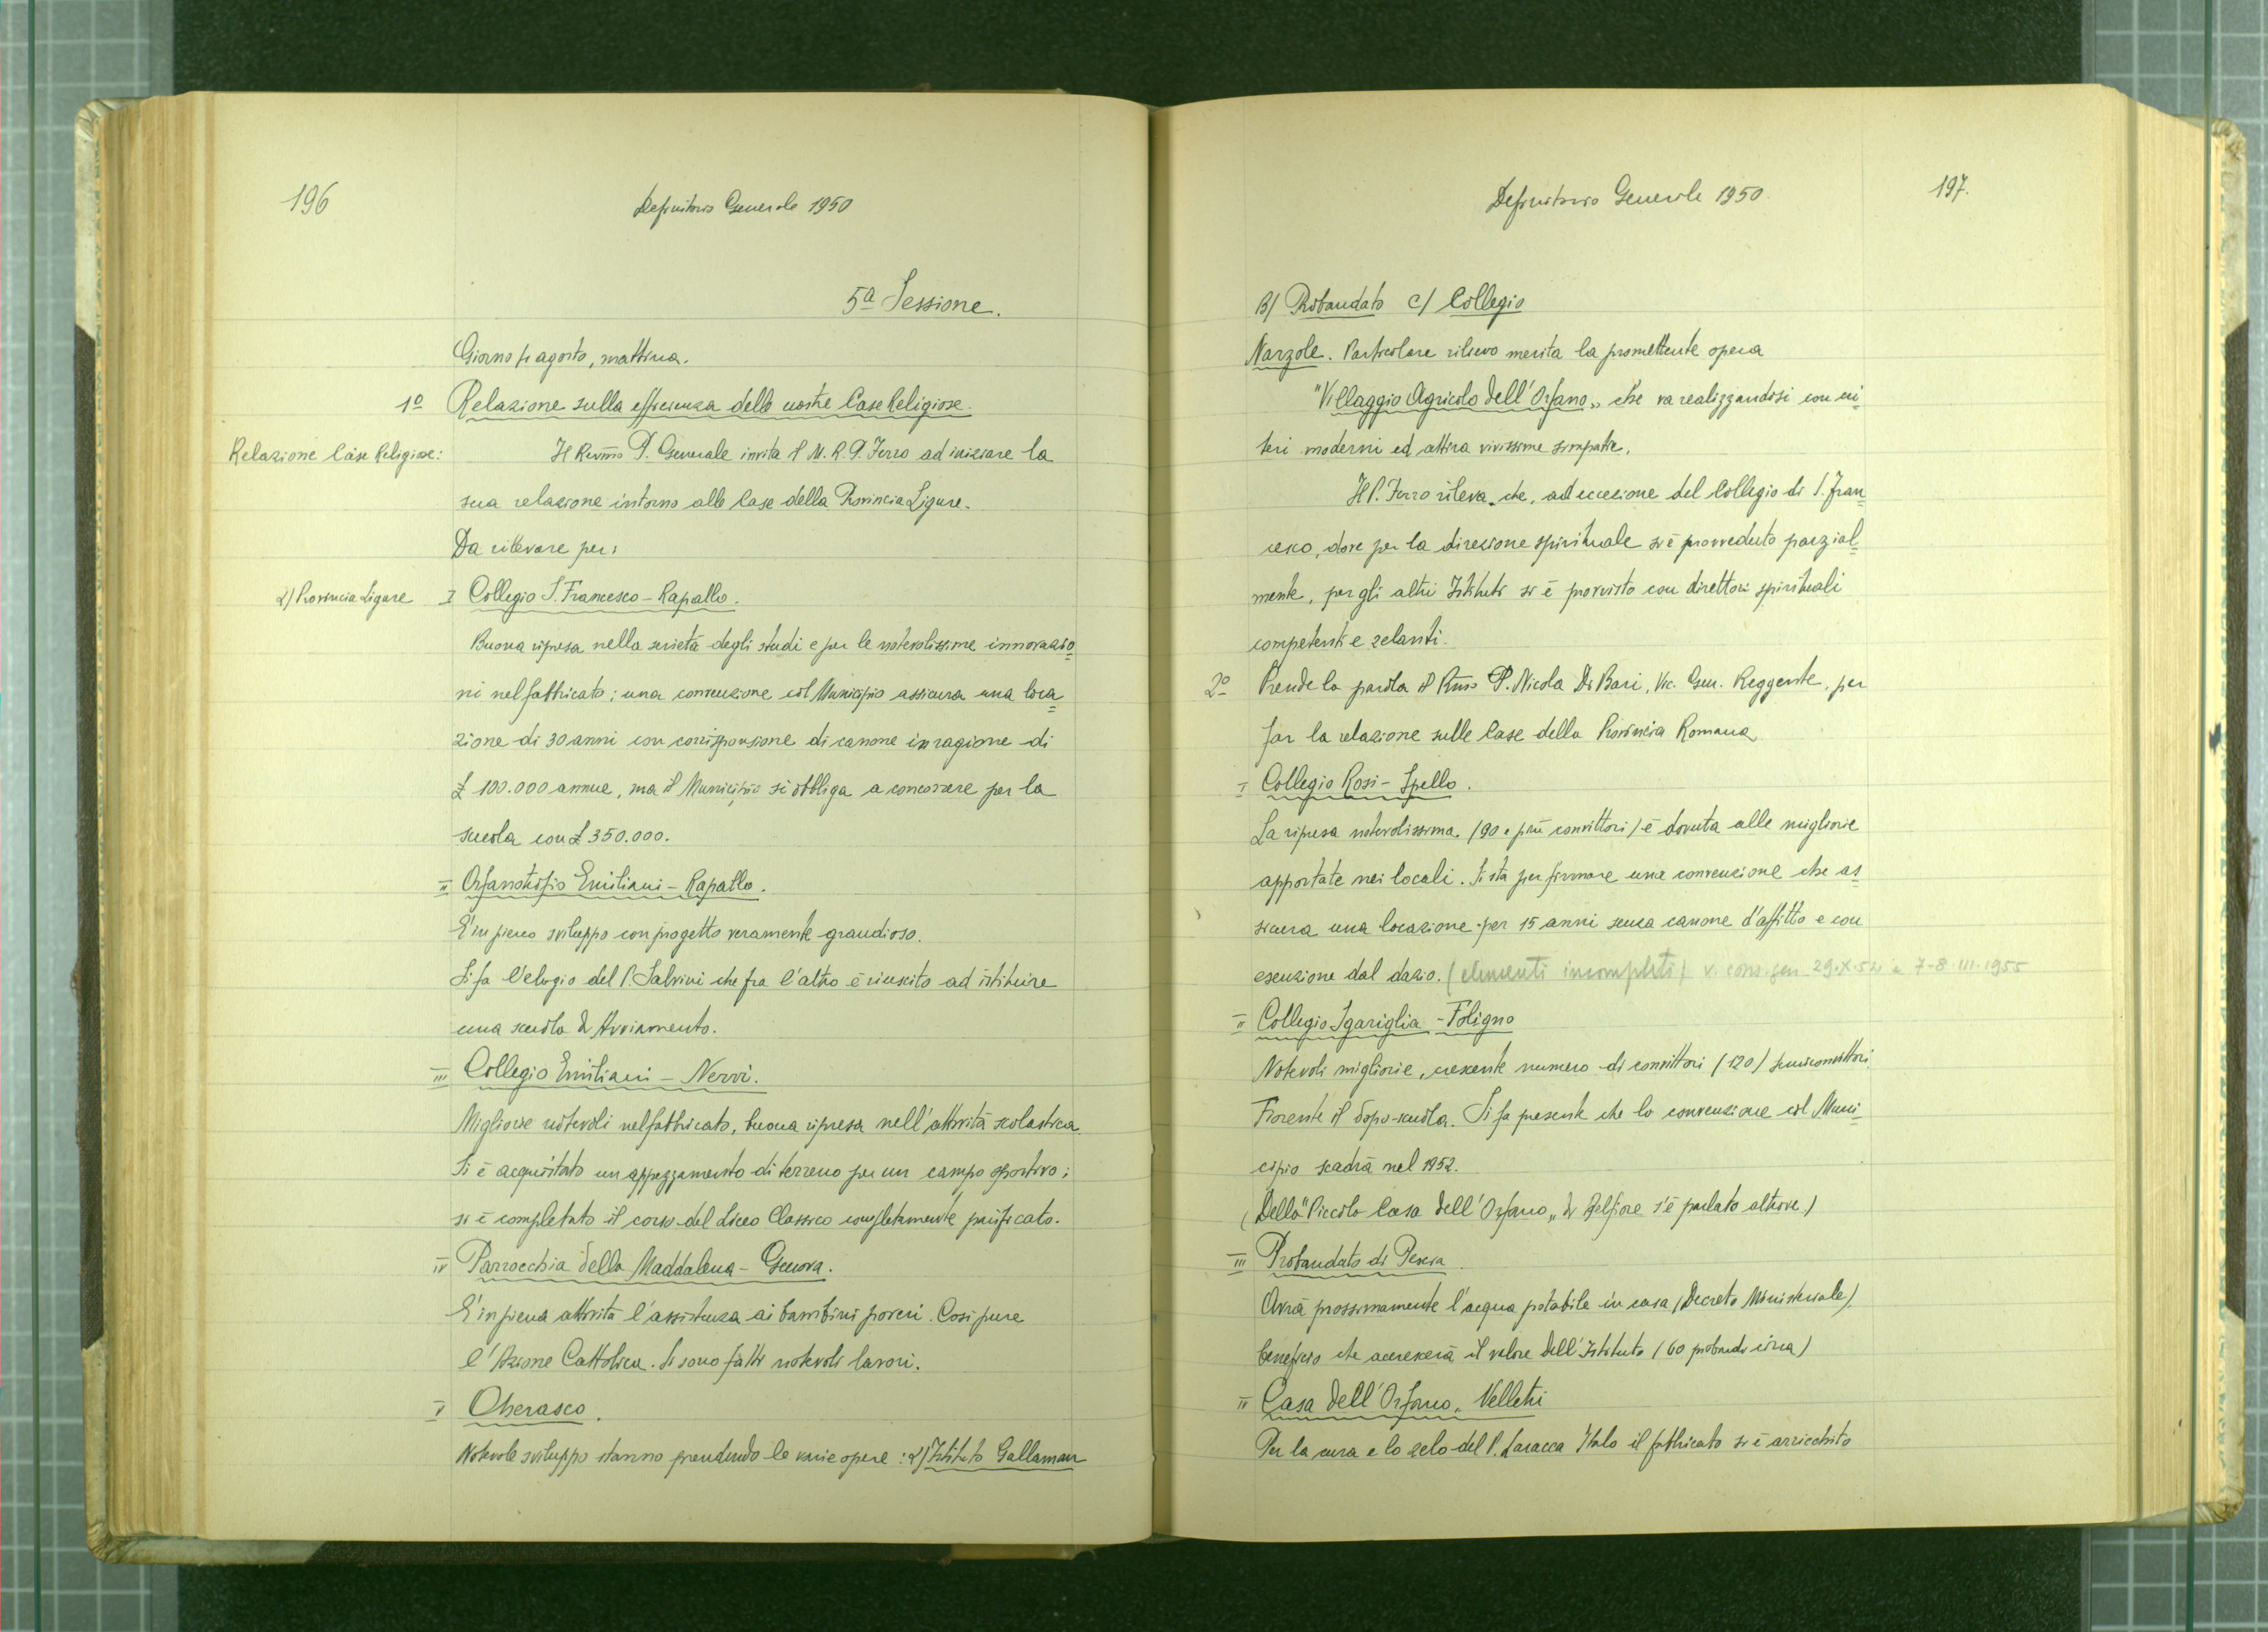 196
Definitorio Generale 1950
5ª Sessione.
Giorno agosto, mattina.
1º Relazione sulla efficienza delle nostre Case Religiose.
Relazione Case Religiose:
Il Rev͞mo P. Generale invita il M. R. P. Ferro ad iniziare la
sua relazione intorno alle Case della Provincia Ligure.
Da rilevare per:
a) Provincia Ligure
I Collegio S. Francesco - Rapallo.
Buona ripresa nella serietà degli studi e per le notevolissime innovazio=
ni nel fabbricato; una convenzione col Municipio assicura una loca=
zione di 30 anni con corrisponsione di canone in ragione di
£ 100.000 annue, ma il Municipio si obbliga a concorrere per la
scuola con £ 350.000.
II Orfanotrofio Emiliani - Rapallo.
E' in pieno sviluppo con progetto veramente grandioso.
Si fa l'elogio del P. Salvini che fra l'altro è riuscito ad istituire
una scuola di Avviamento.
III Collegio Emiliani - Nervi.
Migliorie notevoli nel fabbricato, buona ripresa nell'attività scolastica.
Si è acquistato un appezzamento di terreno per un campo sportivo;
si è completato il corso del Liceo Classico completamente parificato.
IV Parrocchia della Maddalena - Genova.
E' in piena attività l'assistenza ai bambini poveri. Così pure
l'Azione Cattolica. Si sono fatti notevoli lavori.
V Cherasco.
Notevole sviluppo stanno prendendo le varie opere: a) Istituto Gallaman
197.
Definitorio Generale 1950.
B) Probandato C) Collegio
Narzole. Particolare rilievo merita la promettente opera
"Villaggio Agricolo dell'Orfano„ che va realizzandosi con cri=
teri moderni ed attira vivissime simpatie.
Il P. Ferro rileva che, ad eccezione del Collegio di S. Fran=
cesco, dove per la direzione spirituale si è provveduto parzial=
mente, per gli altri Istituti si è provvisto con direttori spirituali
competenti e zelanti.
2º Prende la parola il R͞mo P. Nicola Di Bari, Vic. Gen. Reggente, per
far la relazione sulle Case della Provincia Romana
I Collegio Rosi - Spello.
La ripresa notevolissima (90 e più convittori) è dovuta alle migliorie
apportate nei locali. Si sta per firmare una convenzione che as=
sicura una locazione per 15 anni senza canone d'affitto e con
esenzione dal dazio. (elementi incompleti) v. cons. gen 29.X.52 e 7-8.III.1955
II Collegio Sgariglia - Foligno
Notevoli migliorie, crescente numero di convittori (120) semiconvittori.
Fiorente il dopo-scuola. Si fa presente che la convenzione col Muni=
cipio scadrà nel 1952.
(Della "Piccola Casa dell'Orfano„ di Belfiore s'è parlato altrove.)
III Probandato di Pescia.
Avrà prossimamente l'acqua potabile in casa (Decreto Ministeriale),
beneficio che accrescerà il valore dell'Istituto (60 probandi circa)
IV Casa dell'Orfano„ Velletri
Per la cura e lo zelo del P. Laracca Italo il fabbricato si è arricchito